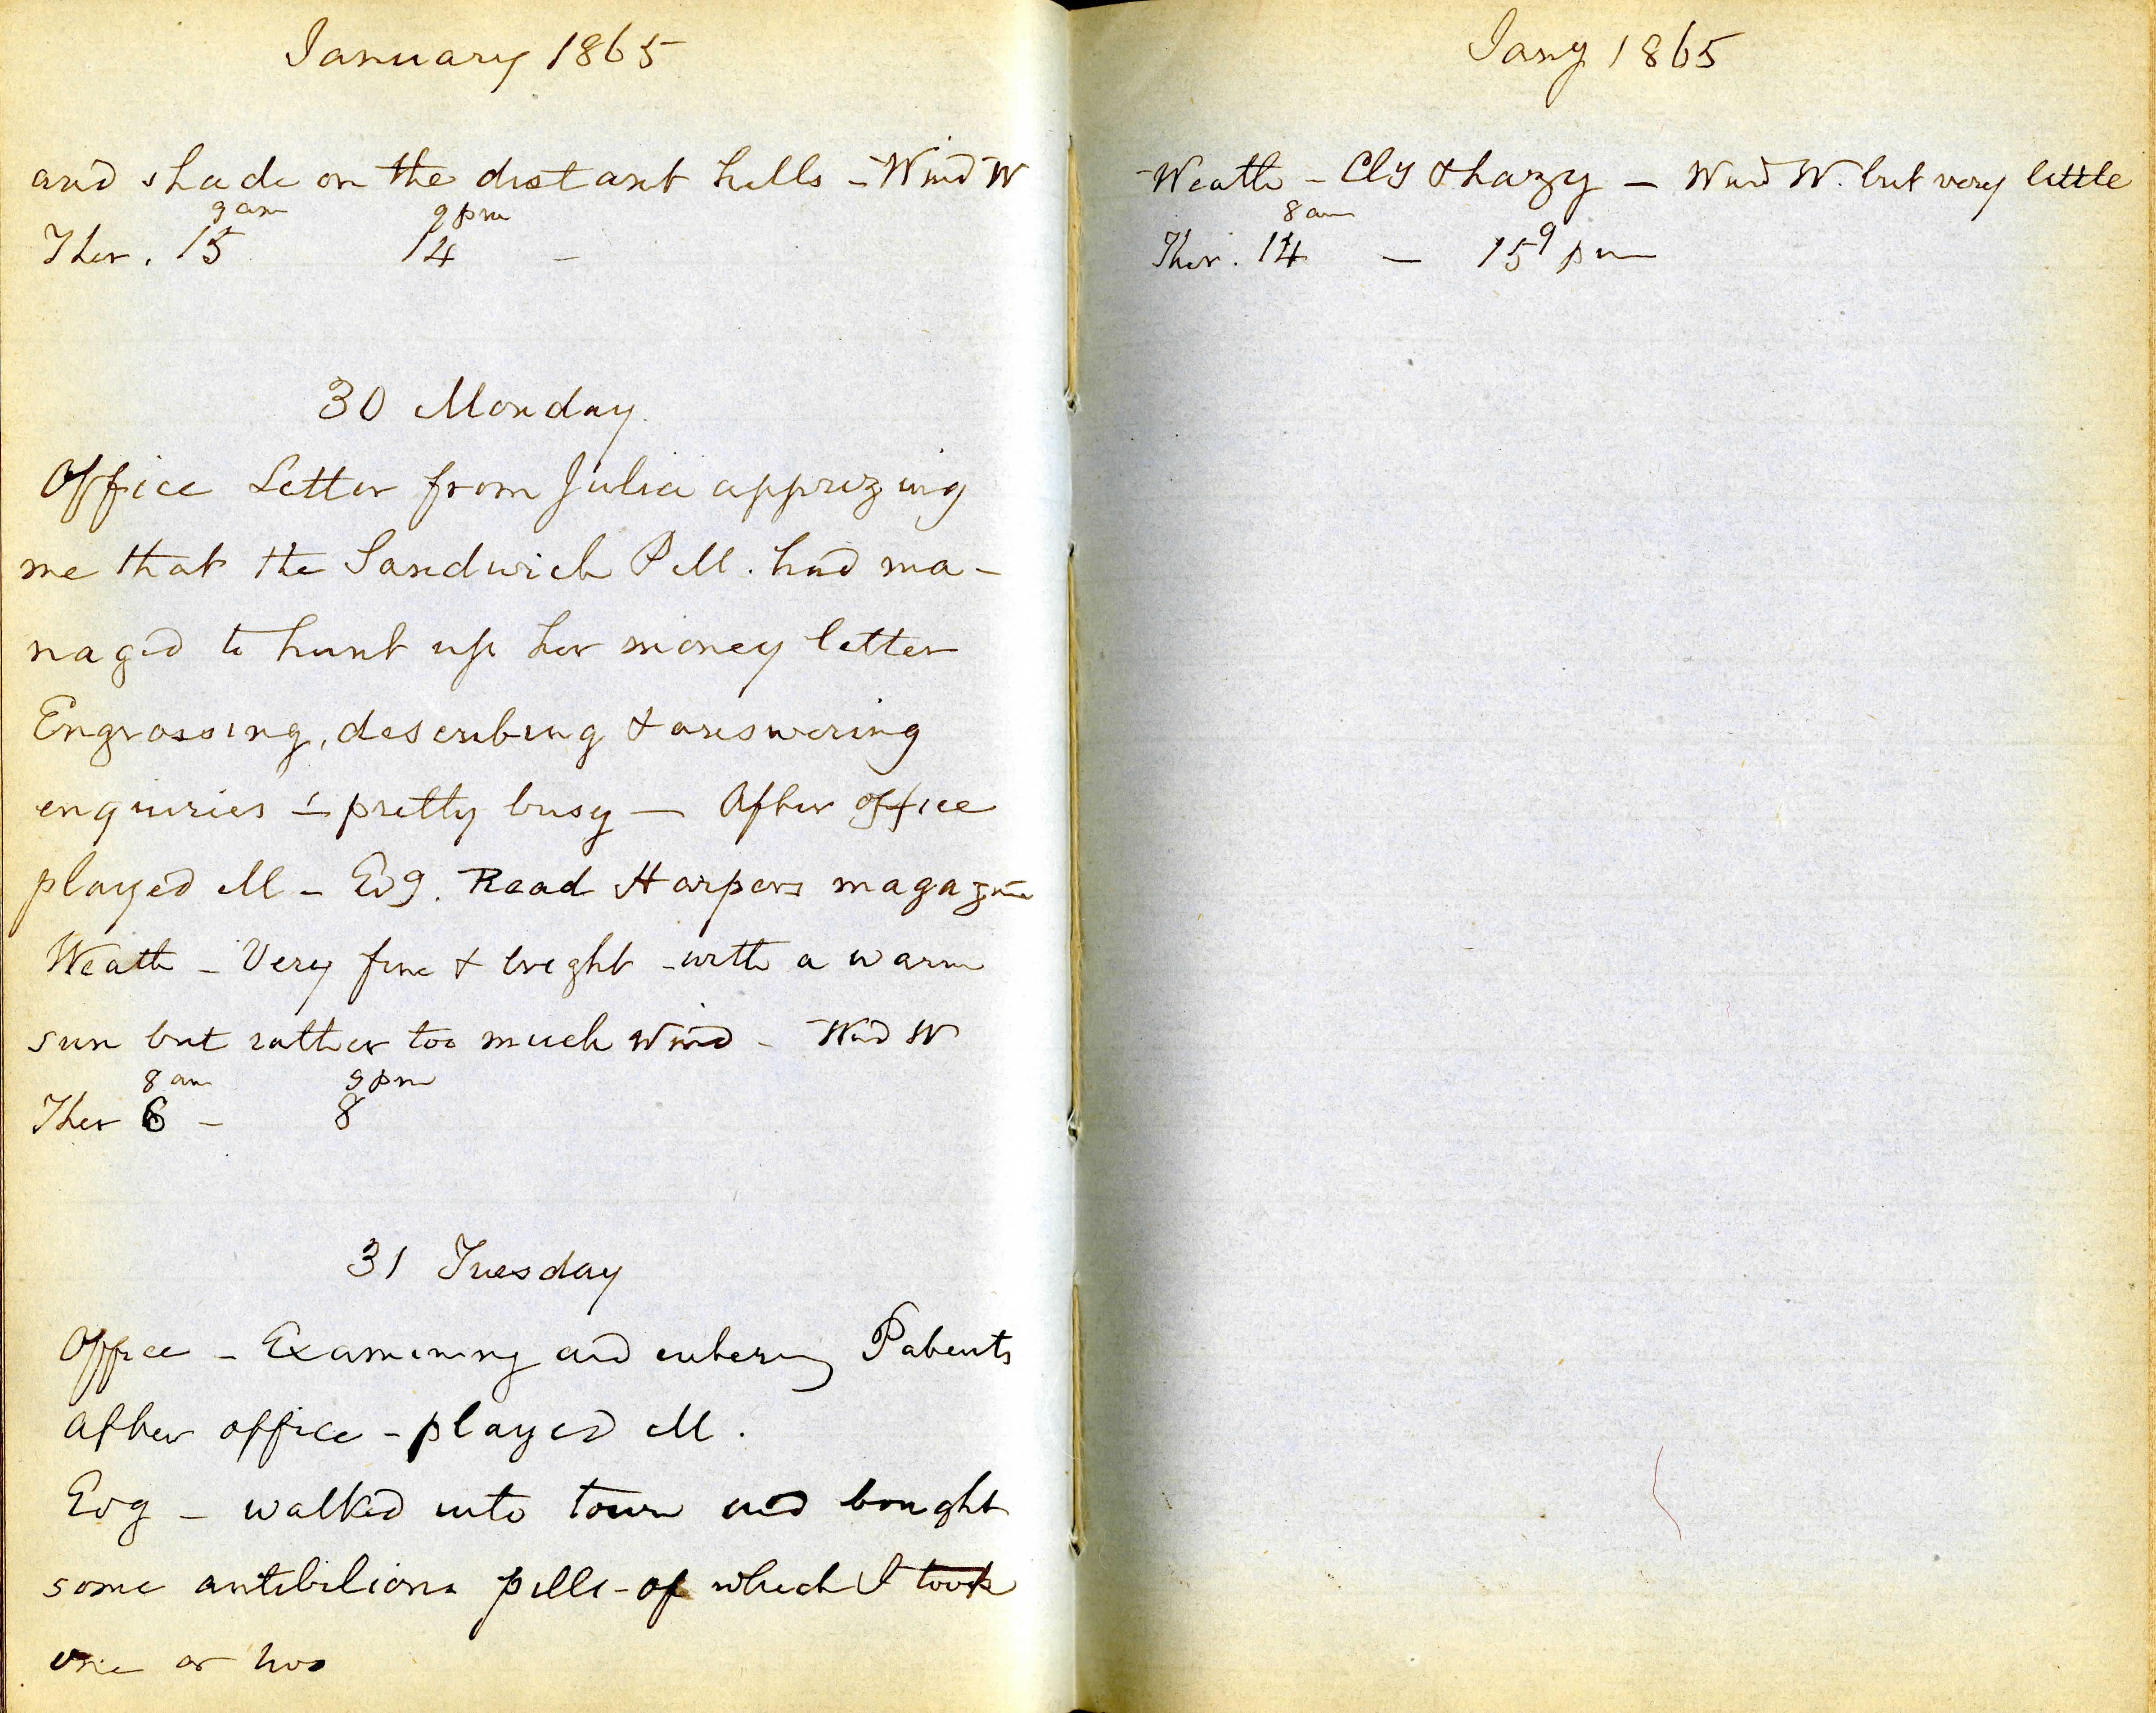 January 1865
and shade on the distant hills - Wind W
9 am 9 pm
Ther. 15 14 -
30 Monday.
Office Letter from Julia apprizing
me that the Sandwich P M. had ma-
naged to hunt up her money letter
Engrossing, describing & answering
enquiries - pretty busy - After office
played M - Evg. Read Harpers magazine
Weath - Very fine & bright - with a warm
sun but rather too much wind - Wind W
8 am 9 pm
Ther 6 - 8
31 Tuesday
Office - Examining and entering Patents
After office - played M.
Evg - walked into town and bought
some antibilious pills - of which I took
one or two
Jany 1865
Weath - Cly & hazy - Wind W. but very little
8 am
Ther. 14 - 15 9 pm